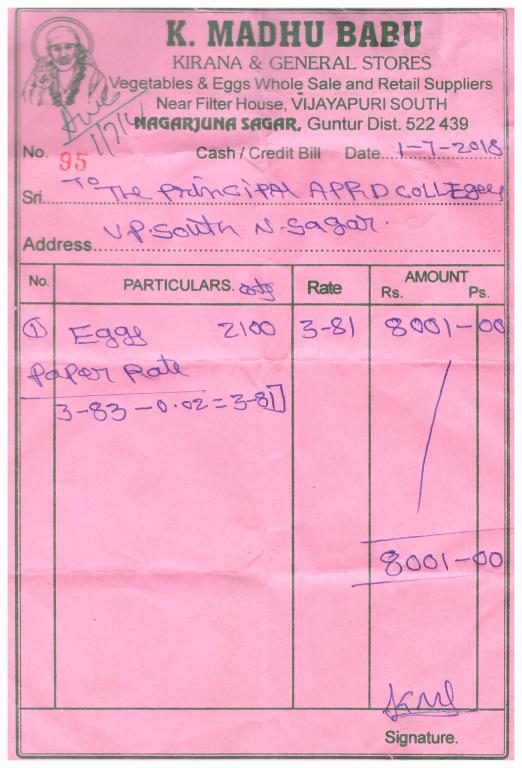 K. MADHU BABU
KIRANA & GENERAL STORES
Vegetables & Eggs Whole Sale and Retail Suppliers
Near Filter House, VIJAYAPURI SOUTH
NAGARJUNA SAGAR, Guntur Dist. 522 439
No. 95 Cash / Credit Bill Date 1-7-2018
Sri. To The Principal A.P.R.D College
Address V.P. South N. Sagar.
No. PARTICULARS. Rate AMOUNT
Rs. Ps.
① Eggs 2100 3-81 8001-00
Paper Rate
3-83 - 0.02 = 3-81
8001-00
Signature.